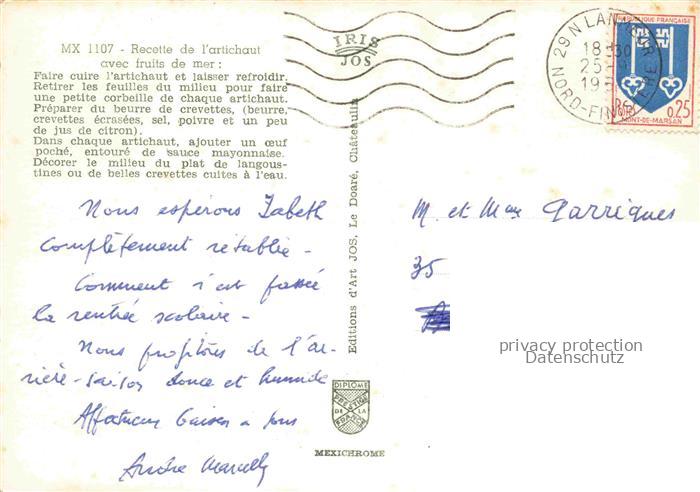 MX 1107 - Recette de l'artichaut
avec fruits de mer :
Faire cuire l'artichaut et laisser refroidir.
Retirer les feuilles du milieu pour faire
une petite corbeille de chaque artichaut.
Préparer du beurre de crevettes, (beurre,
crevettes écrasées, sel, poivre et un peu
de jus de citron).
Dans chaque artichaut, ajouter un œuf
poché, entouré de sauce mayonnaise.
Décorer le milieu du plat de langous-
tines ou de belles crevettes cuites à l'eau.
Nous espérons Zabeth
complètement rétablie -
Comment s'est passée
la rentrée scolaire -
Nous profitons de l'ar-
rière-saison douce et humide
Affectueux baisers à tous
André
Editions d'Art JOS, Le Doaré, Châteaulin
IRIS
JOS
DIPLOME
PRESTIGE
DE LA
FRANCE
MEXICHROME
29 N LANMEUR
18H30
25
NORD-FIN
REPUBLIQUE FRANÇAISE
0,25
MONT-DE-MARSAN
M. et Mme Garrigues
35
privacy protection
Datenschutz